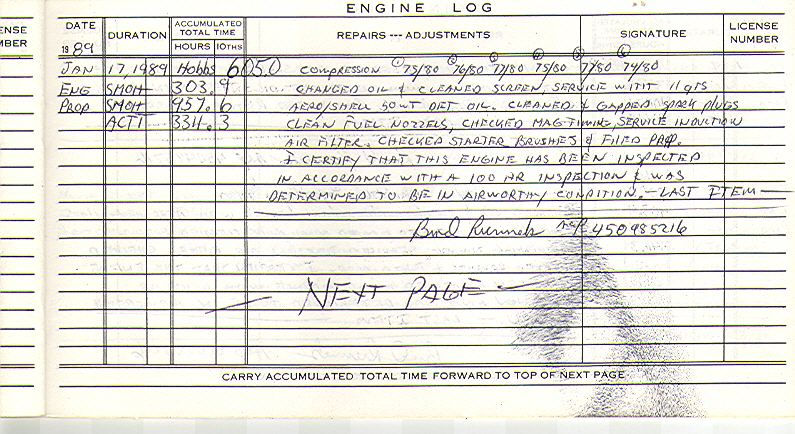 ENGINE LOG
DATE DURATION ACCUMULATED TOTAL TIME HOURS 10THS REPAIRS --- ADJUSTMENTS SIGNATURE LICENSE NUMBER
ENSE
MBER
1989
JAN 17, 1989 Hobbs 6050 COMPRESSION ① 75/80 ② 76/80 ③ 77/80 ④ 75/80 ⑤ 77/80 ⑥ 74/80
ENG SMOH 303.9 CHANGED OIL & CLEANED SCREEN, SERVICE WITH 11 qts
PROP SMOH 957.6 AERO/SHELL 50 WT DET OIL. CLEANED & GAPPED SPARK PLUGS
ACTT 3311.3 CLEAN FUEL NOZZELS, CHECKED MAG-TIMING, SERVICE INDUCTION
AIR FILTER. CHECKED STARTER BRUSHES & FILED PROP.
I CERTIFY THAT THIS ENGINE HAS BEEN INSPECTED
IN ACCORDANCE WITH A 100 HR INSPECTION & WAS
DETERMINED TO BE IN AIRWORTHY CONDITION. — LAST ITEM —
A&P 450985216
— NEXT PAGE —
CARRY ACCUMULATED TOTAL TIME FORWARD TO TOP OF NEXT PAGE